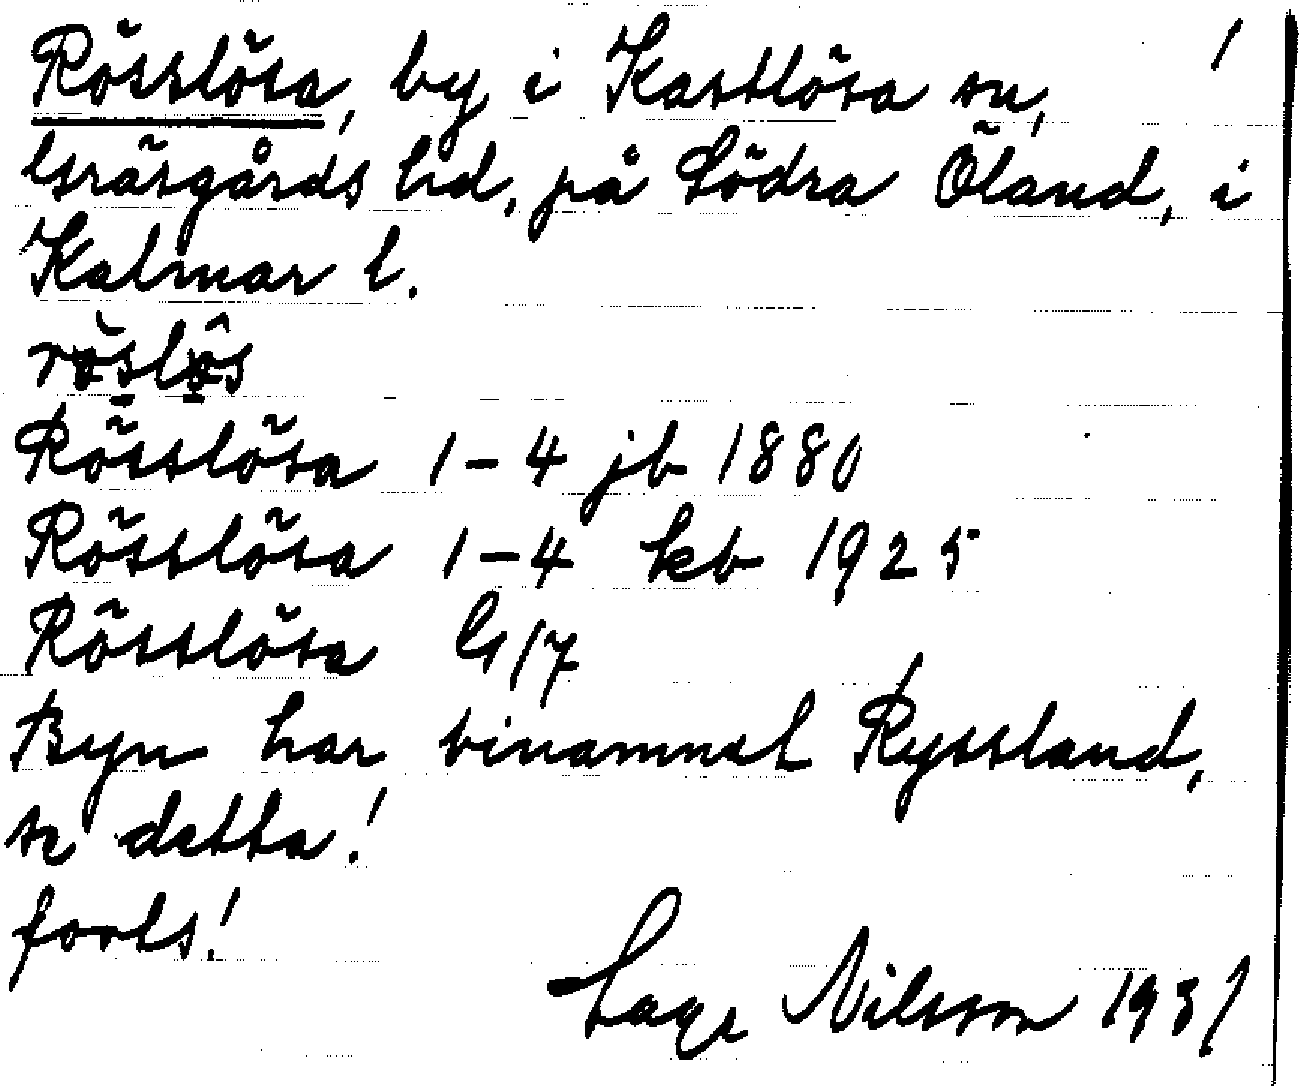 Rösslösa, by i Kastlösa sn, /
Gräsgårds hd, på Södra Öland, i
Kalmar l.
röslös
Rösslösa 1-4 jb 1880
Rösslösa 1-4 kb 1925
Rösslösa G 17
Byn har binamnet Ryssland,
se detta!
forts!
Lage Nilsson 1931